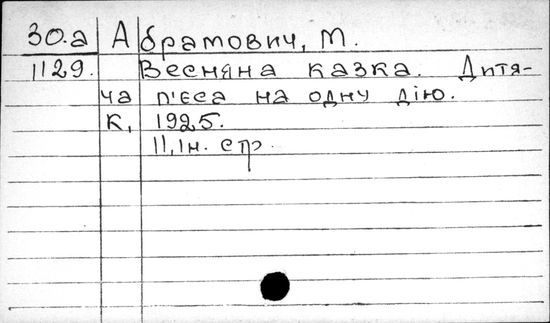 30.а Абрамович, М.
1129. Весняна казка. Дитя-
ча п'єса на одну дію.
К, 1925.
11, 1н. стр.